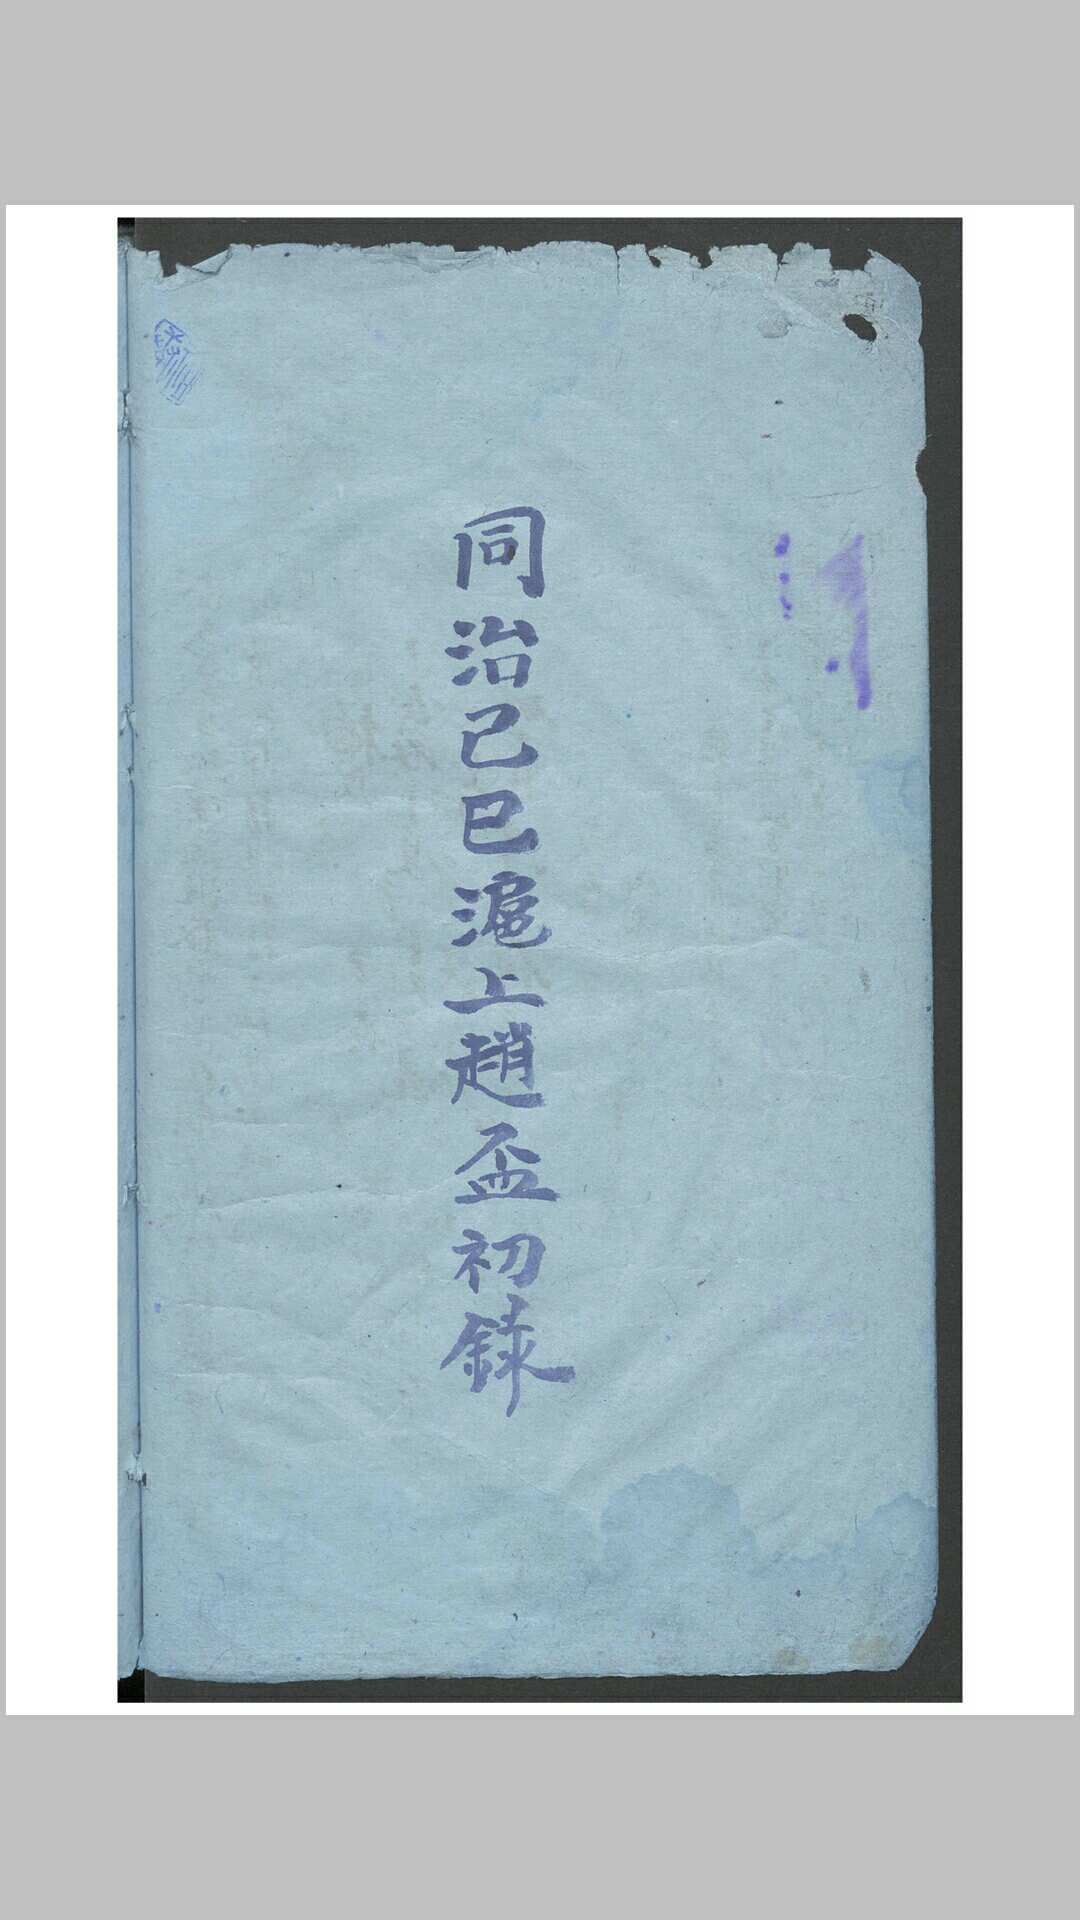 同治己巳滬上趙盃初錄